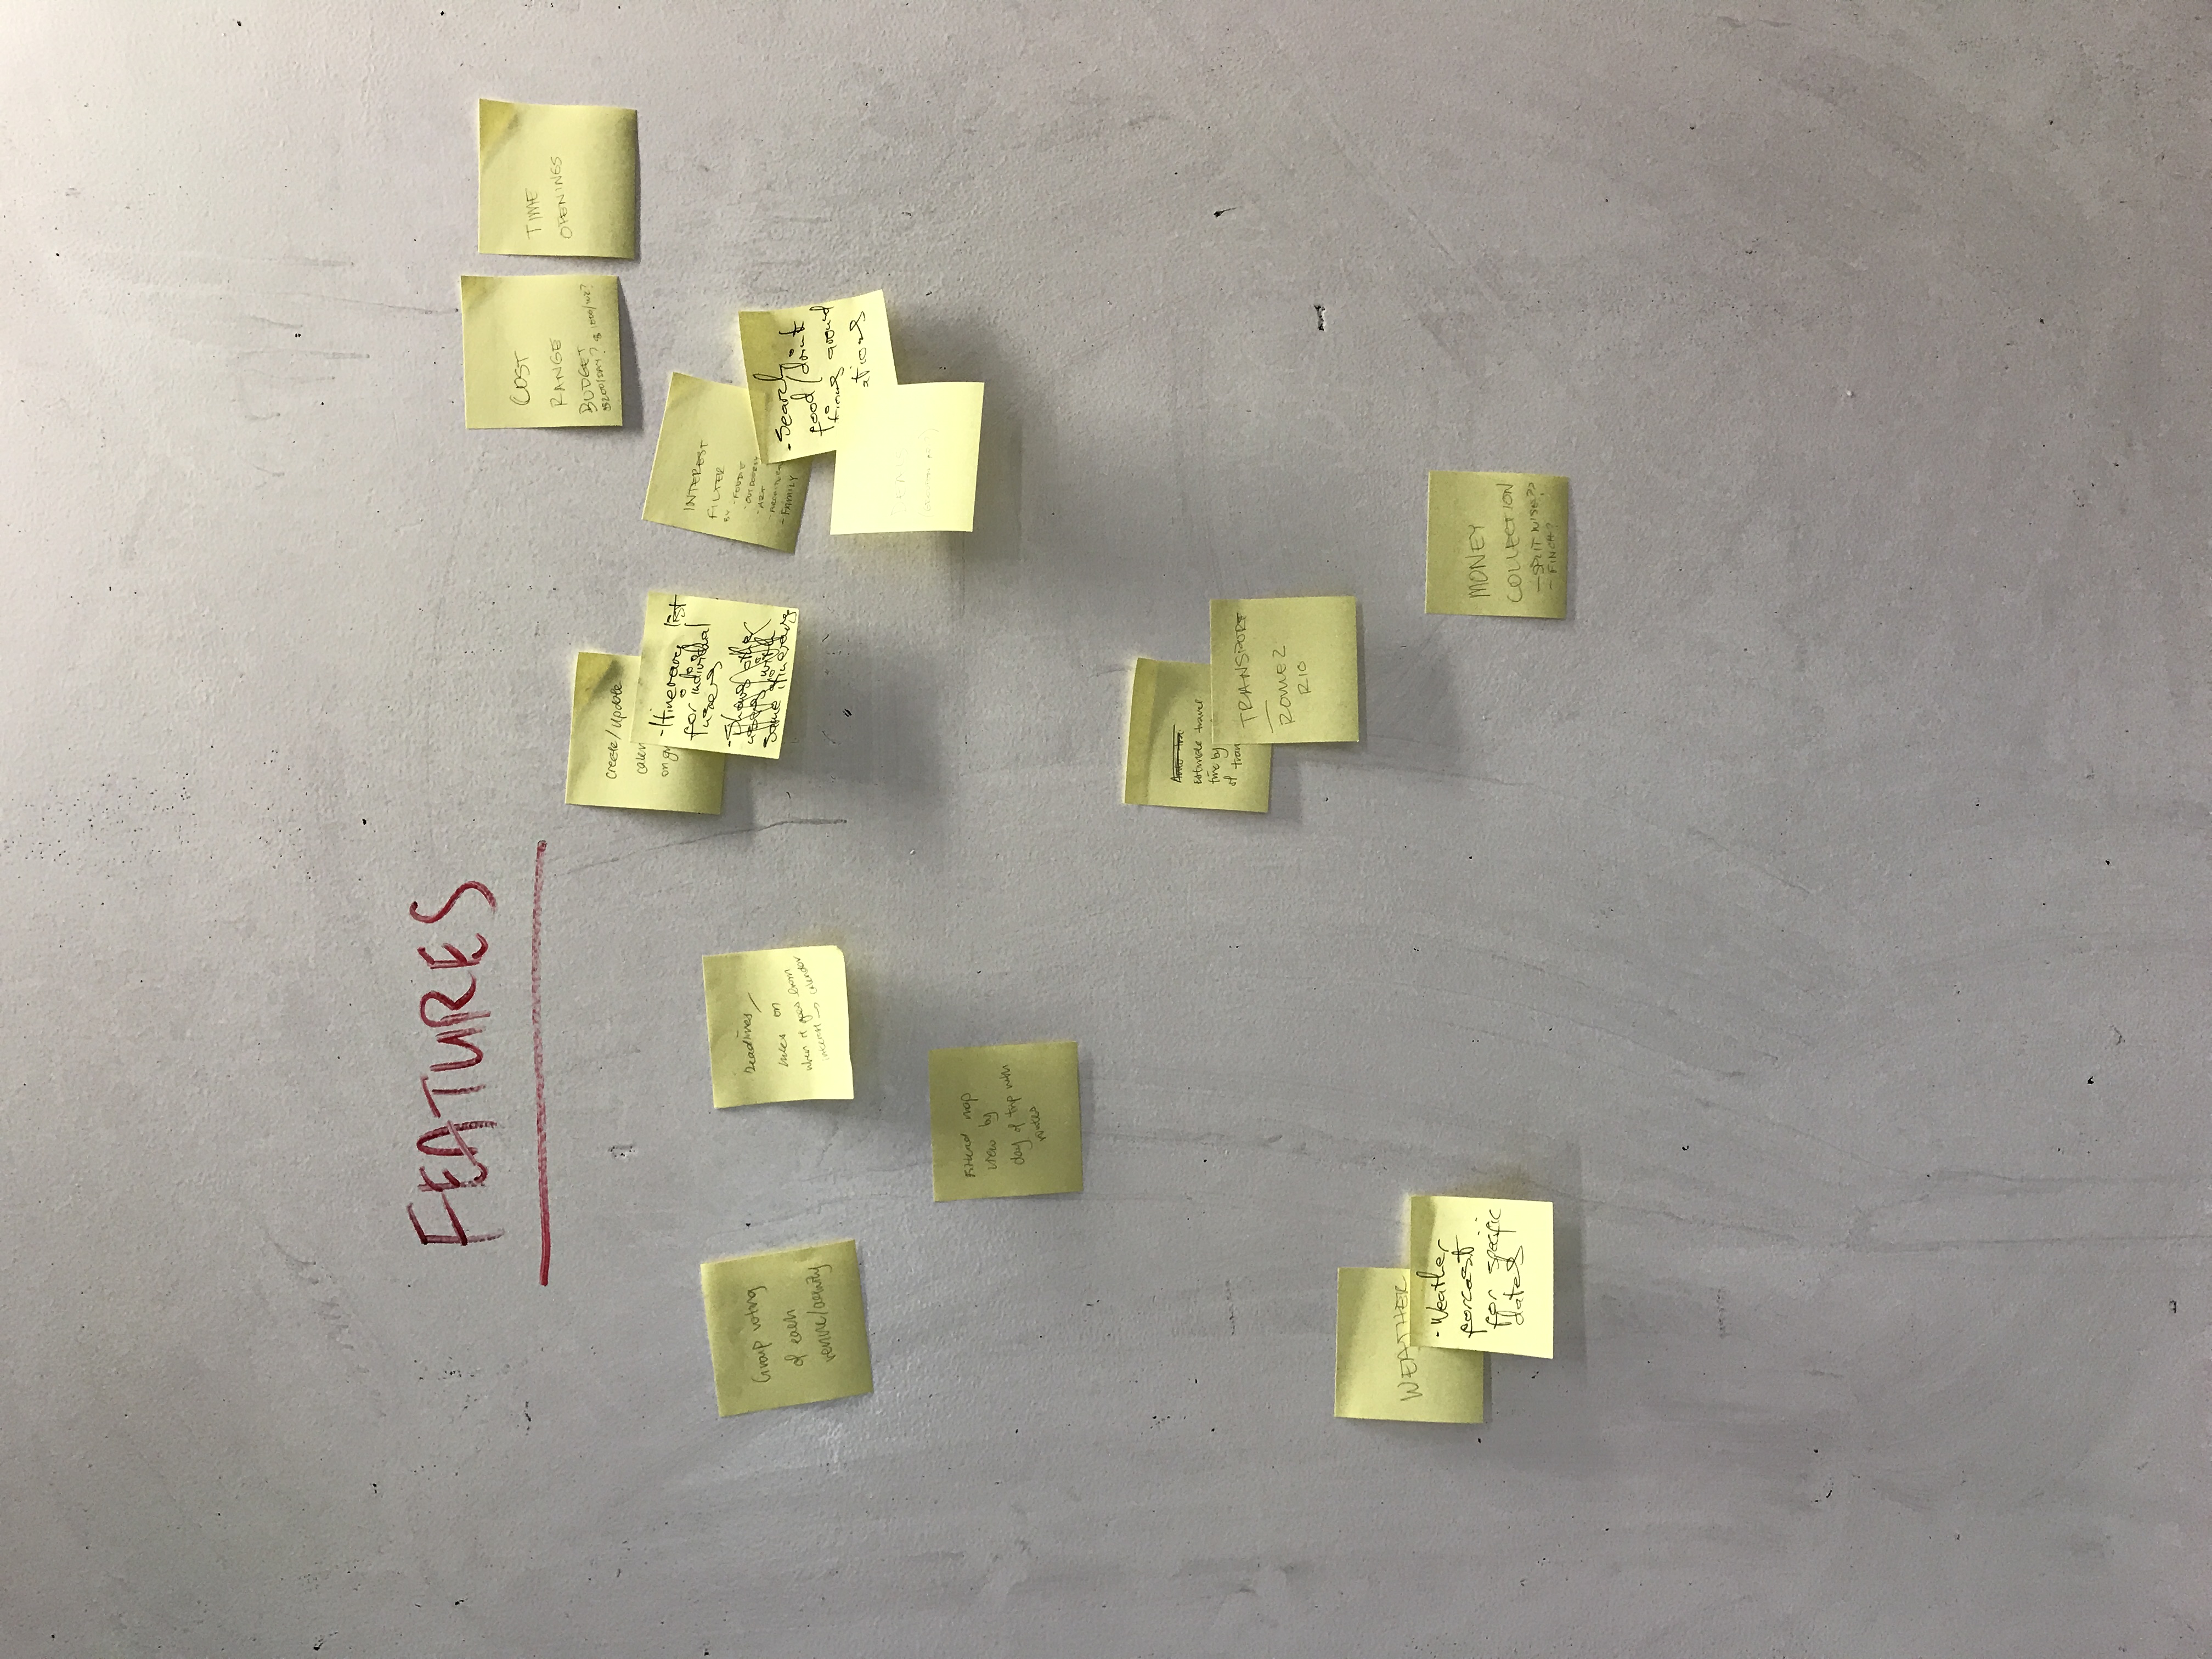 FEATURES
COST
RANGE
BUDGET
$200/DAY?
TIME
OPENINGS
create/update
calen
- Itinerary list
for individual
users
- Shows other
users with
same itinerary
INTEREST
FILTER
BY - FOODIE
- OUTDOORSY
- ART
- FAMILY
- Search
food/drink
around
ations
Group voting
of each
venue/activity
Deadlines/
rules on
when it goes from
interest → calendar
Filtered map
view by
day of trip with
routes
Estimate travel
time by
of tran
TRANSPORT
ROME 2
RIO
WEATHER
- Weather
forcast
for specific
dates
MONEY
COLLECTION
- SPLITWISE??
- FINCH?